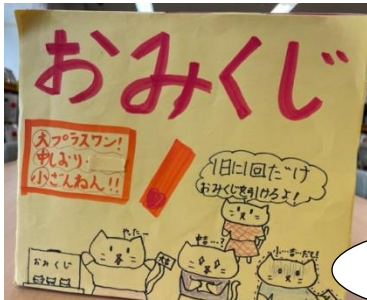 おみくじ
大プラスワン!
中しおり・
小ざんねん!!
1日に1回だけ
おみくじを引けるよ!
やったー
おみくじ